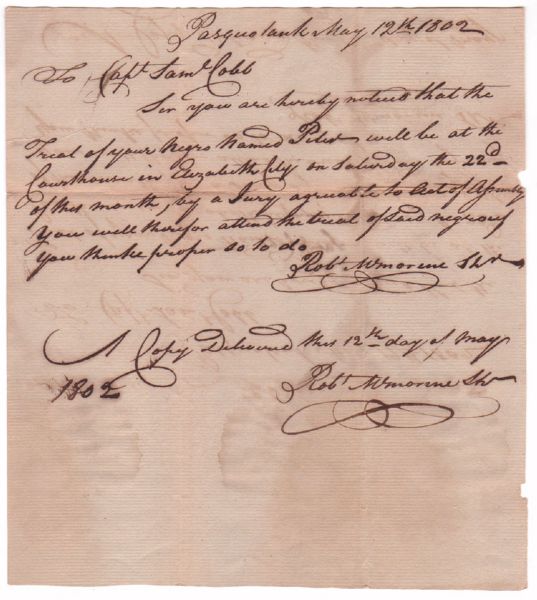 Pasquotank May 12th 1802
To Capt. Saml Cobb
Sir you are hereby noticed that the
Trial of your Negro Named Peter will be at the
Courthouse in Elizabeth City on Saturday the 22d
of this month, by a Jury agreable to Act of Assembly
You will therefor attend the trial of said negro if
You think proper so to do
Robt. Mcmorine Shr
A Copy Delivered this 12th day of May
1802
Robt. Mcmorine Shr